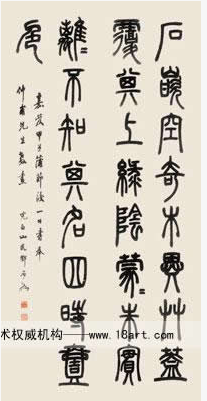 石嵌空奇木異艸蓋
覆其上綠陰蒙〻朱實
離〻不知其名四時壹
色
嘉慶甲子蒲節後一日書奉
仲甫先生
完白山民鄧石如
术权威机构——www.18art.com